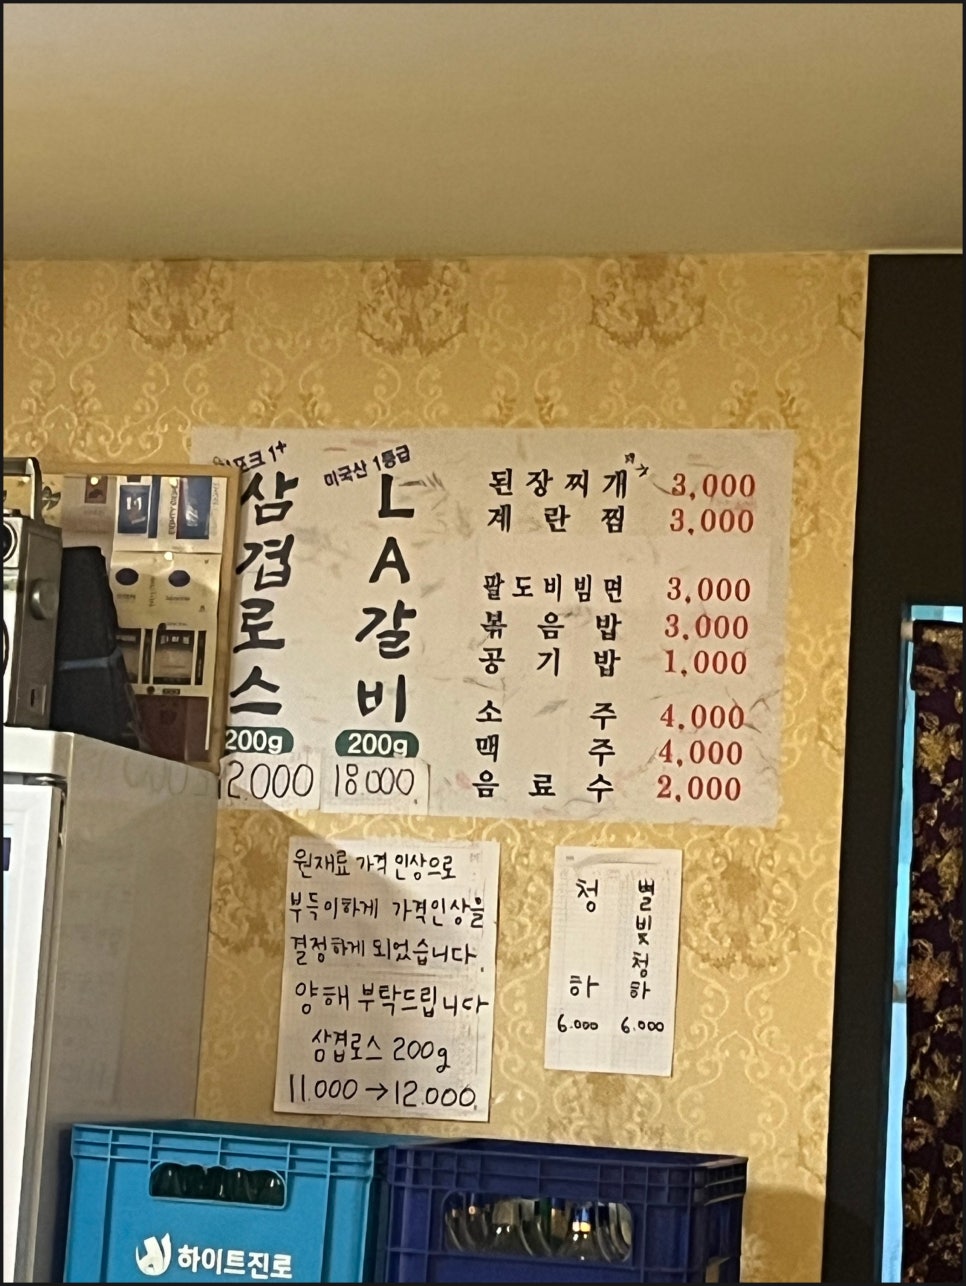 포크 1+
삼겹로스
200g
12.000
미국산 1등급
LA갈비
200g
18.000
된장찌개 3,000
계란찜 3,000
팔도비빔면 3,000
볶음밥 3,000
공기밥 1,000
소주 4,000
맥주 4,000
음료수 2,000
원재료 가격 인상으로
부득이하게 가격인상을
결정하게 되었습니다.
양해 부탁드립니다
삼겹로스 200g
11.000→12.000
청하
6.000
별빛청하
6.000
하이트진로